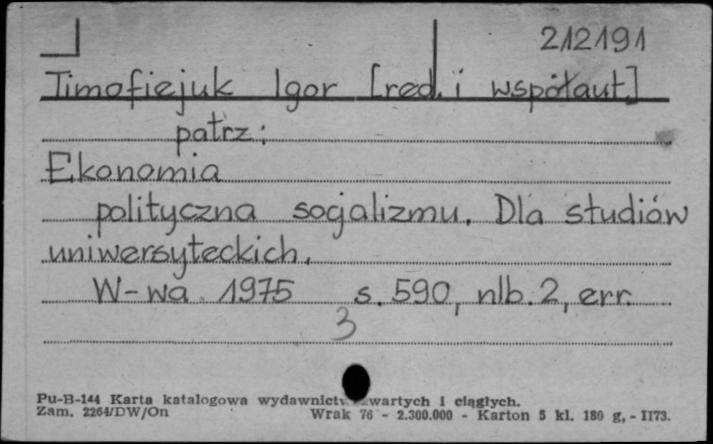 212191
Timofiejuk Igor [red. i współaut.]
patrz:
Ekonomia
polityczna socjalizmu. Dla studiów
uniwersyteckich.
W-wa 1975 s. 590, nlb. 2, err.
3
Pu-B-144 Karta katalogowa wydawnictw zwartych i ciągłych.
Zam. 2264/DW/On Wrak 76 - 2.300.000 - Karton 5 kl. 180 g, - II73.